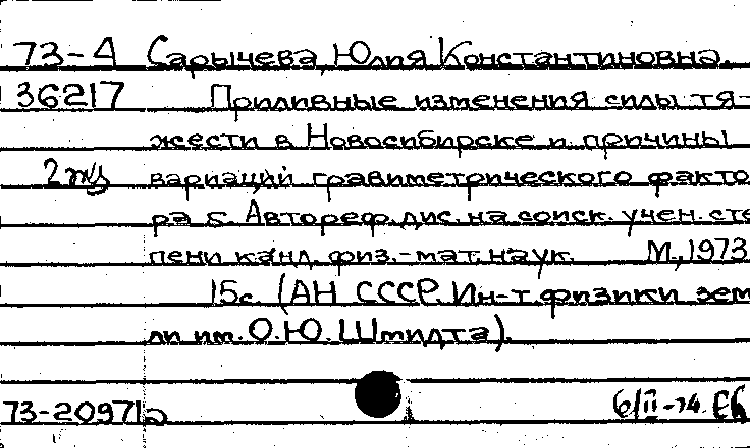 73-4 Сарычева, Юлия Константиновна.
36217 Приливные изменения силы тя-
жести в Новосибирске и причины
2 экз вариаций гравиметрического факто
ра б. Автореф. дис. на соиск. учен. сте
пени канд. физ.-мат. наук. М., 1973
15с. (АН СССР. Ин-т физики зем
ли им. О.Ю. Шмидта).
73-20971а 6/II-74 Еб